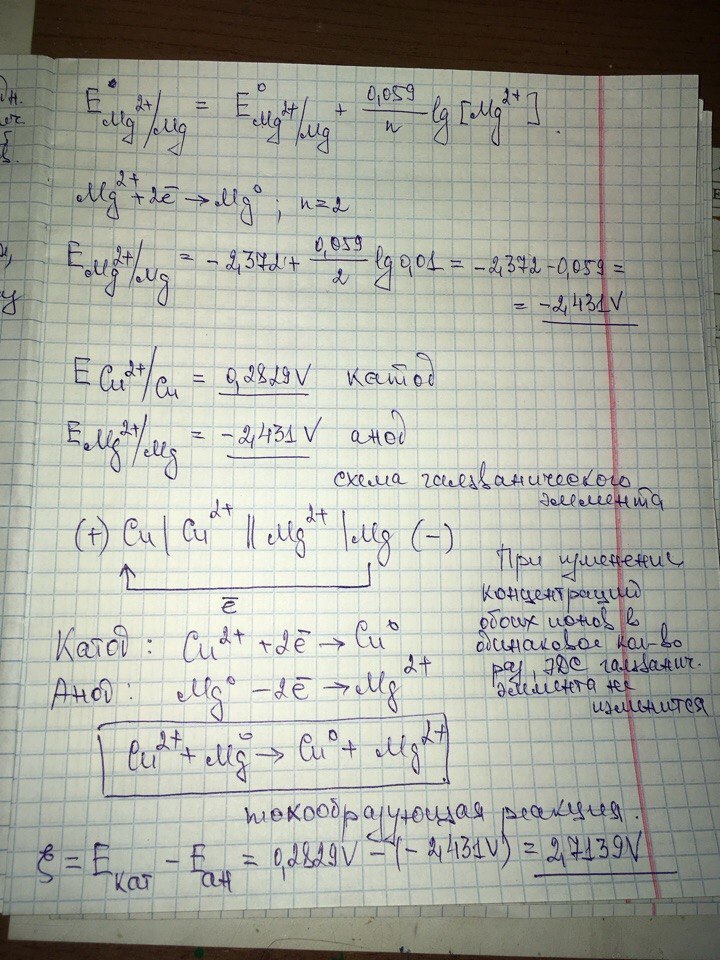 E°Mg²⁺/Mg = E°Mg²⁺/Mg + 0,059/n lg [Mg²⁺].
Mg²⁺+2ē → Mg⁰; n=2
E Mg²⁺/Mg = -2,372 + 0,059/2 lg 0,01 = -2,372 - 0,059 =
= -2,431V
E Cu²⁺/Cu = 0,2829V катод
E Mg²⁺/Mg = -2,431V анод
схема гальванического
элемента
(+) Cu | Cu²⁺ || Mg²⁺ | Mg (-)
ē
При изменение
концентраций
обоих ионов в
одинаковое кол-во
раз, ЭДС гальванич.
элемента не
изменится
Катод: Cu²⁺ + 2ē → Cu⁰
Анод: Mg⁰ - 2ē → Mg²⁺
Cu²⁺ + Mg⁰ → Cu⁰ + Mg²⁺
токообразующая реакция.
ξ = Eкат - Eан = 0,2829V - (-2,431V) = 2,7139V